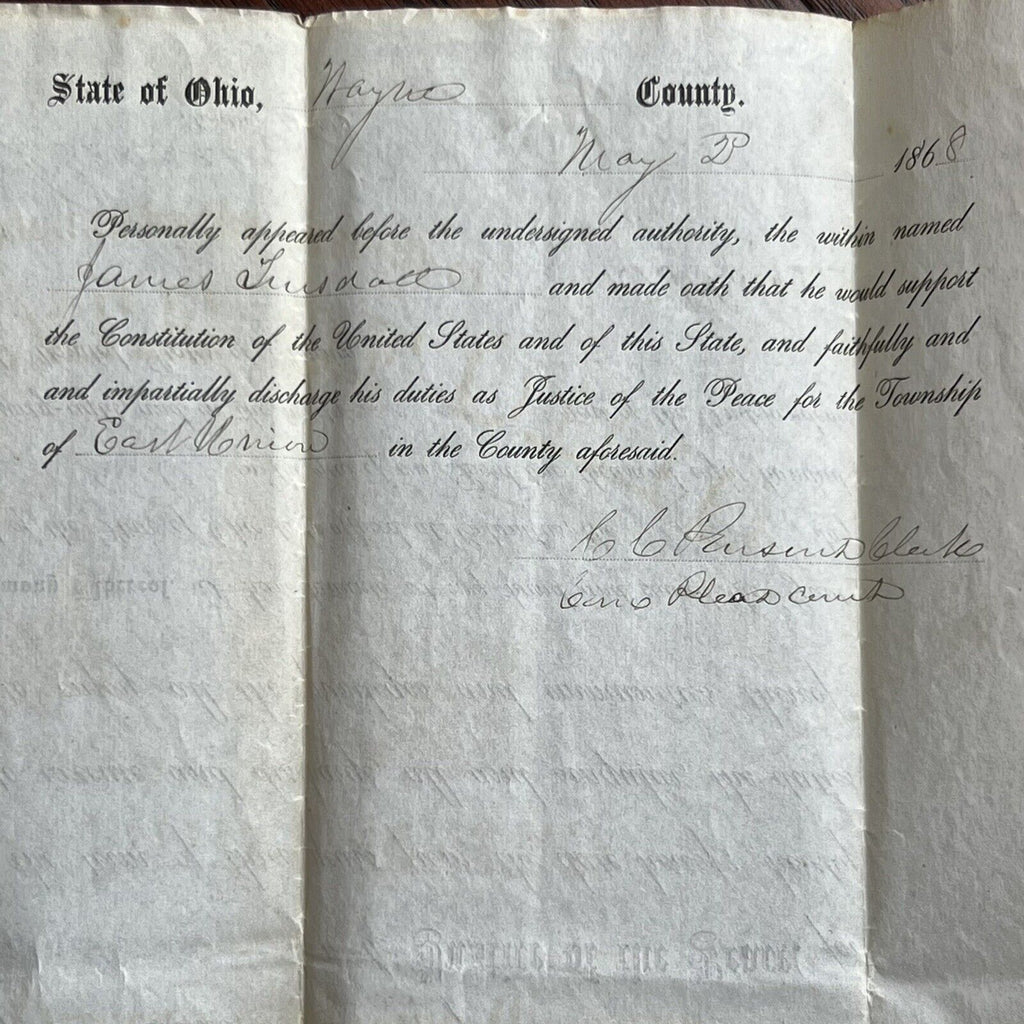 State of Ohio, Wayne County.
May 1868
Personally appeared before the undersigned authority, the within named
James and made oath that he would support
the Constitution of the United States and of this State, and faithfully and
and impartially discharge his duties as Justice of the Peace for the Township
of East Union in the County aforesaid.
C C Clerk
Com Pleas Court